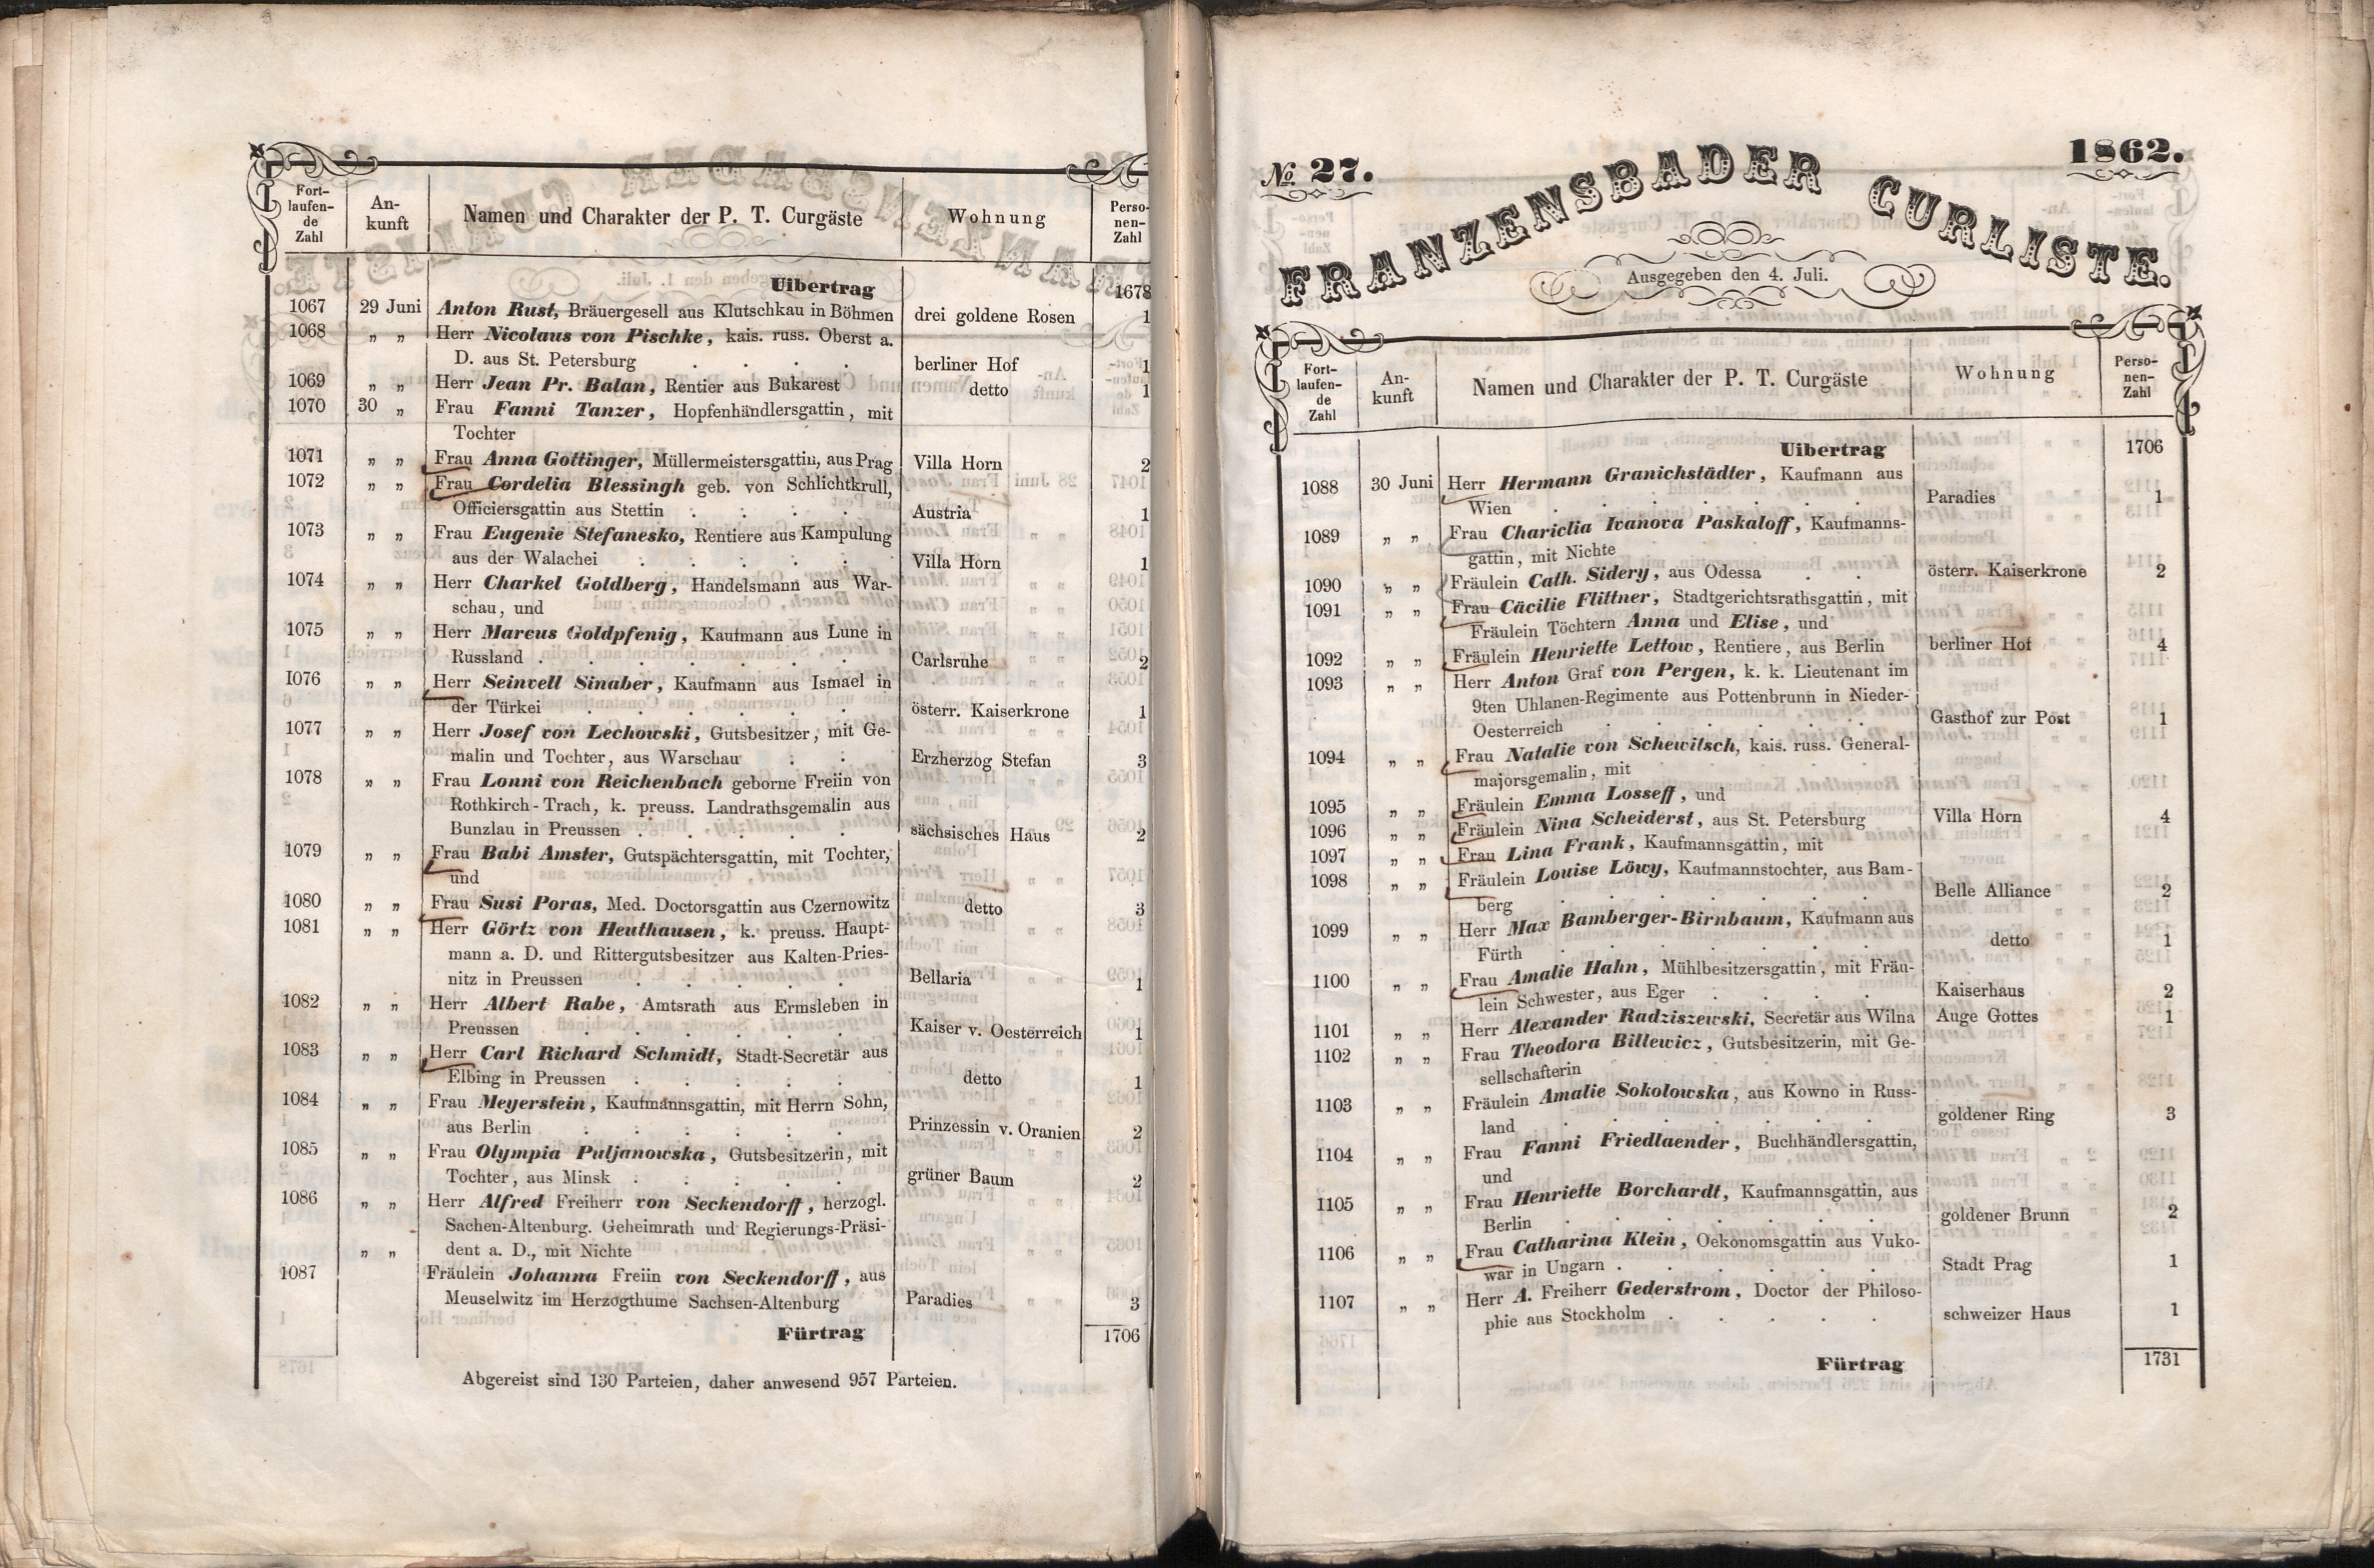 Fort-
laufen-
de
Zahl
An-
kunft
Namen und Charakter der P. T. Curgäste
Wohnung
Perso-
nen-
Zahl
Uibertrag 1678
1067 29 Juni Anton Rust, Bräuergesell aus Klutschkau in Böhmen drei goldene Rosen 1
1068 „ „ Herr Nicolaus von Pischke, kais. russ. Oberst a.
D. aus St. Petersburg . . . . berliner Hof 1
1069 „ „ Herr Jean Pr. Balan, Rentier aus Bukarest detto 1
1070 30 „ Frau Fanni Tanzer, Hopfenhändlersgattin, mit
Tochter
1071 „ „ Frau Anna Gottinger, Müllermeistersgattin, aus Prag Villa Horn 2
1072 „ „ Frau Cordelia Blessingh geb. von Schlichtkrull,
Officiersgattin aus Stettin . . . . Austria 1
1073 „ „ Frau Eugenie Stefanesko, Rentiere aus Kampulung
aus der Walachei . . . . . Villa Horn 1
1074 „ „ Herr Charkel Goldberg, Handelsmann aus War-
schau, und
1075 „ „ Herr Marcus Goldpfenig, Kaufmann aus Lune in
Russland . . . . . . . Carlsruhe 2
1076 „ „ Herr Seinvell Sinaber, Kaufmann aus Ismael in
der Türkei . . . . . . österr. Kaiserkrone 1
1077 „ „ Herr Josef von Lechowski, Gutsbesitzer, mit Ge-
malin und Tochter, aus Warschau . . Erzherzog Stefan 3
1078 „ „ Frau Lonni von Reichenbach geborne Freiin von
Rothkirch-Trach, k. preuss. Landrathsgemalin aus
Bunzlau in Preussen . . . . . sächsisches Haus 2
1079 „ „ Frau Babi Amster, Gutspächtersgattin, mit Tochter,
und
1080 „ „ Frau Susi Poras, Med. Doctorsgattin aus Czernowitz detto 3
1081 „ „ Herr Görtz von Heuthausen, k. preuss. Haupt-
mann a. D. und Rittergutsbesitzer aus Kalten-Pries-
nitz in Preussen . . . . . Bellaria 1
1082 „ „ Herr Albert Rabe, Amtsrath aus Ermsleben in
Preussen . . . . . . Kaiser v. Oesterreich 1
1083 „ „ Herr Carl Richard Schmidt, Stadt-Secretär aus
Elbing in Preussen . . . . . detto 1
1084 „ „ Frau Meyerstein, Kaufmannsgattin, mit Herrn Sohn,
aus Berlin . . . . . . Prinzessin v. Oranien 2
1085 „ „ Frau Olympia Puljanowska, Gutsbesitzerin, mit
Tochter, aus Minsk . . . . . grüner Baum 2
1086 „ „ Herr Alfred Freiherr von Seckendorff, herzogl.
Sachen-Altenburg. Geheimrath und Regierungs-Präsi-
„ „ dent a. D., mit Nichte
1087 Fräulein Johanna Freiin von Seckendorff, aus
Meuselwitz im Herzogthume Sachsen-Altenburg Paradies 3
Fürtrag 1706
Abgereist sind 130 Parteien, daher anwesend 957 Parteien.
№ 27.
1862.
FRANZENSBADER CURLISTE.
Ausgegeben den 4. Juli.
Fort-
laufen-
de
Zahl
An-
kunft
Namen und Charakter der P. T. Curgäste
Wohnung
Perso-
nen-
Zahl
Uibertrag 1706
1088 30 Juni Herr Hermann Granichstädter, Kaufmann aus
Wien . . . . . . . Paradies 1
1089 „ „ Frau Chariclia Ivanova Paskaloff, Kaufmanns-
gattin, mit Nichte
1090 „ „ Fräulein Cath. Sidery, aus Odessa . . österr. Kaiserkrone 2
1091 „ „ Frau Cäcilie Flittner, Stadtgerichtsrathsgattin, mit
Fräulein Töchtern Anna und Elise, und
1092 „ „ Fräulein Henriette Lettow, Rentiere, aus Berlin berliner Hof 4
1093 „ „ Herr Anton Graf von Pergen, k. k. Lieutenant im
9ten Uhlanen-Regimente aus Pottenbrunn in Nieder-
Oesterreich . . . . . . Gasthof zur Post 1
1094 „ „ Frau Natalie von Schewitsch, kais. russ. General-
majorsgemalin, mit
1095 „ „ Fräulein Emma Losseff, und
1096 „ „ Fräulein Nina Scheiderst, aus St. Petersburg Villa Horn 4
1097 „ „ Frau Lina Frank, Kaufmannsgattin, mit
1098 „ „ Fräulein Louise Löwy, Kaufmannstochter, aus Bam-
berg . . . . . . . Belle Alliance 2
1099 „ „ Herr Max Bamberger-Birnbaum, Kaufmann aus
Fürth . . . . . . . detto 1
1100 „ „ Frau Amalie Hahn, Mühlbesitzersgattin, mit Fräu-
lein Schwester, aus Eger . . . . Kaiserhaus 2
1101 „ „ Herr Alexander Radziszewski, Secretär aus Wilna Auge Gottes 1
1102 „ „ Frau Theodora Billewicz, Gutsbesitzerin, mit Ge-
sellschafterin
1103 „ „ Fräulein Amalie Sokolowska, aus Kowno in Russ-
land . . . . . . . goldener Ring 3
1104 „ „ Frau Fanni Friedlaender, Buchhändlersgattin,
und
1105 „ „ Frau Henriette Borchardt, Kaufmannsgattin, aus
Berlin . . . . . . . goldener Brunn 2
1106 „ „ Frau Catharina Klein, Oekonomsgattin aus Vuko-
war in Ungarn . . . . . . Stadt Prag 1
1107 „ „ Herr A. Freiherr Gederstrom, Doctor der Philoso-
phie aus Stockholm . . . . . schweizer Haus 1
Fürtrag 1731